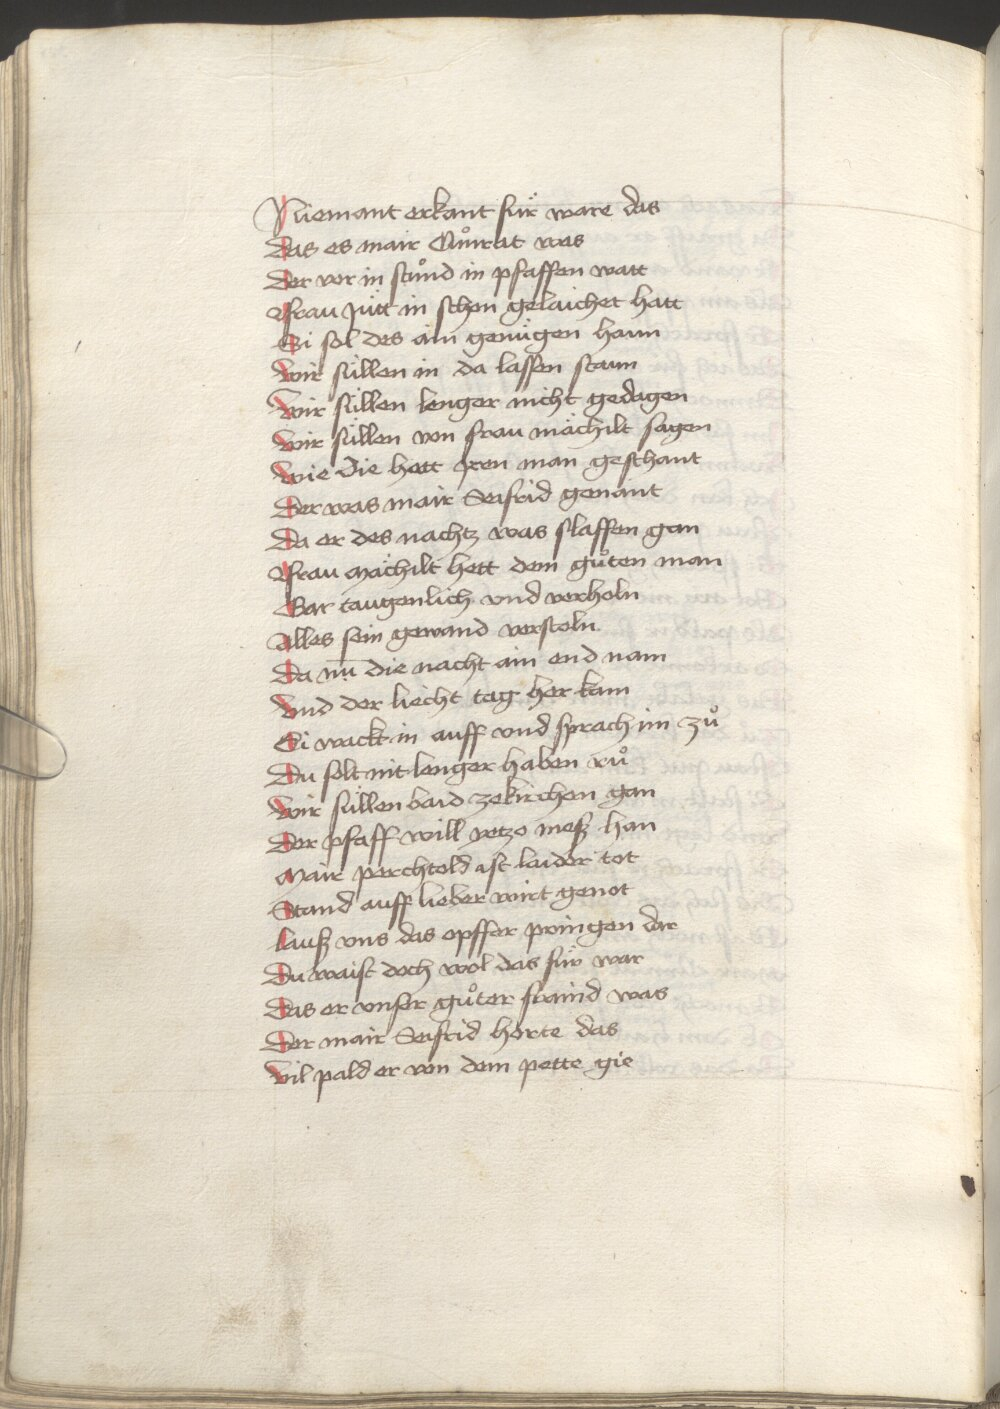 Niemant erkant fúr ware das
Das es mair Cuͦnrat was
Der vor in stuͦnd in pfaffen watt
Frau Jútt in schon gelaichet hatt
Si sol des ain genúgen hann
Wir súllen in da lassen stann
Wir súllen lenger nicht gedagen
Wir súllen von frau mächilt sagen
Wie die hett iren man geschant
Der was mair Seifrid genant
Da er des nachtz was slaffen gan
Frau mächilt hett dem guͦten man
Gar taugenlich vnd verholn
Alles sein gewand verstoln
Da nu̅ die nacht ain end nam
Vnd der liecht tag her kam
Si wackt in auff vnd sprach im zuͦ
Du solt nit lenger haben ruͦ
Wir súllen baid ze kirchen gan
Der pfaff will yetzo meß han
Mair perchtold ist laider tot
Stand auff lieber wirt genot
Lauß vns das opffer pringen dar
Du waist doch wol das fúr war
Das er vnser guͦter fraind was
Der mair Seifrid horte das
Vil pald er von dem pette gie